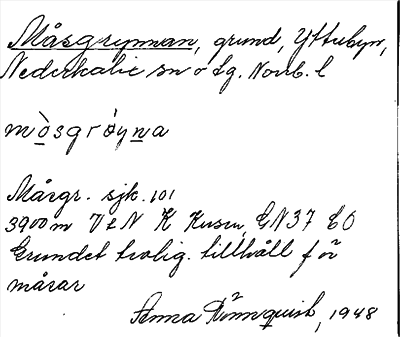 Måsgrynnan, grund, Ytterbyn,
Nederkalix sn o Lg. Norrb. l
mòsgrøyna
Måsgr. sjk. 101
3900 m V t N K Kusen, GN37 CO
Grundet trolig. tillhåll för
måsar
Anna Rönnquist, 1948